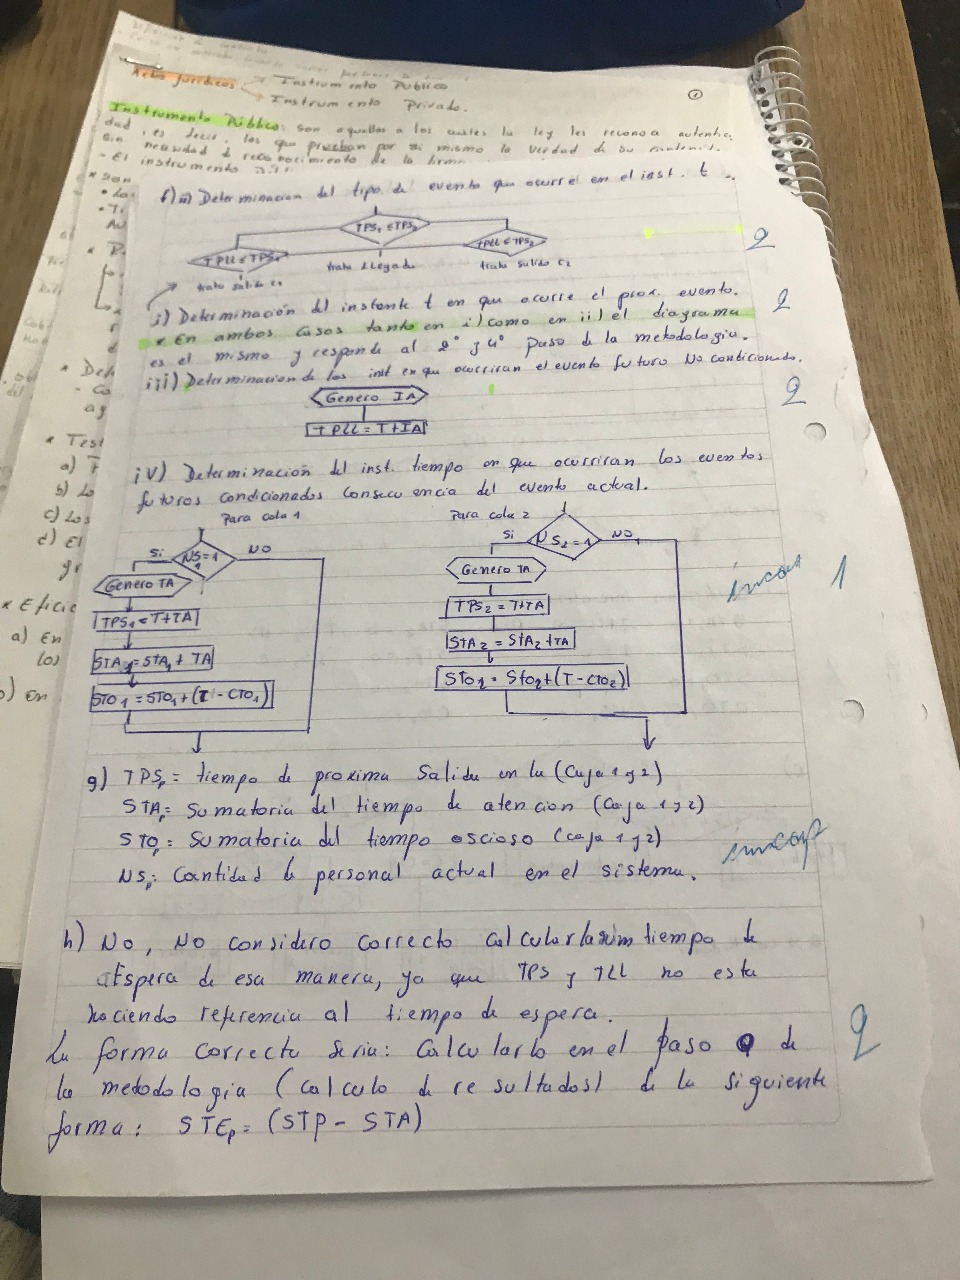 Actos Jurídicos
Instrumento Público
Instrumento Privado.
1
Instrumento Público: son aquellos a los cuales la ley les reconoce autentici
dad, es decir, los que prueban por si mismo la verdad de su contenido
sin necesidad d reconocimiento de la firma
- El instrumento
f) ii) Determinacion del tipo de evento que ocurre en el inst. t
TPS1 ≤ TPS2
TPLL ≤ TPS1
TPLL ≤ TPS2
trato salida C1
trato llegada
trato salida C2
2
i) Determinación del instante t en que ocurre el prox. evento.
2
* En ambos casos tanto en i) como en ii) el diagrama
es el mismo y responde al 2° y 4° paso de la metodologia.
iii) Determinacion de los inst en que ocurriran el evento futuro No condicionado.
Genero IA
TPLL = T+IA
2
iV) Determinación del inst. tiempo en que ocurriran los eventos
futuros condicionados consecuencia del evento actual.
Para cola 1
Para cola 2
Si
NS1=1
NO
Si
NS2=1
NO
Genero TA
Genero TA
TPS1 = T+TA
TPS2 = T+TA
STA1 = STA1 + TA
STA2 = STA2 + TA
STO1 = STO1 + (T - CTO1)
STO2 = STO2 + (T - CTO2)
incop
1
g) TPSp = tiempo de proxima Salida en la (Caja 1 y 2)
STAp = Sumatoria del tiempo de atencion (Caja 1 y 2)
STOp = Sumatoria del tiempo oscioso (caja 1 y 2)
NSp: Cantidad de personal actual en el sistema.
incop
h) No, No considero correcto calcular tiempo de
Espera de esa manera, ya que TPS y TLL no esta
haciendo referencia al tiempo de espera.
La forma correcta seria: Calcularlo en el paso 9 de
la metodologia (calculo de resultados) de la siguiente
forma: STEp = (STP - STA)
2